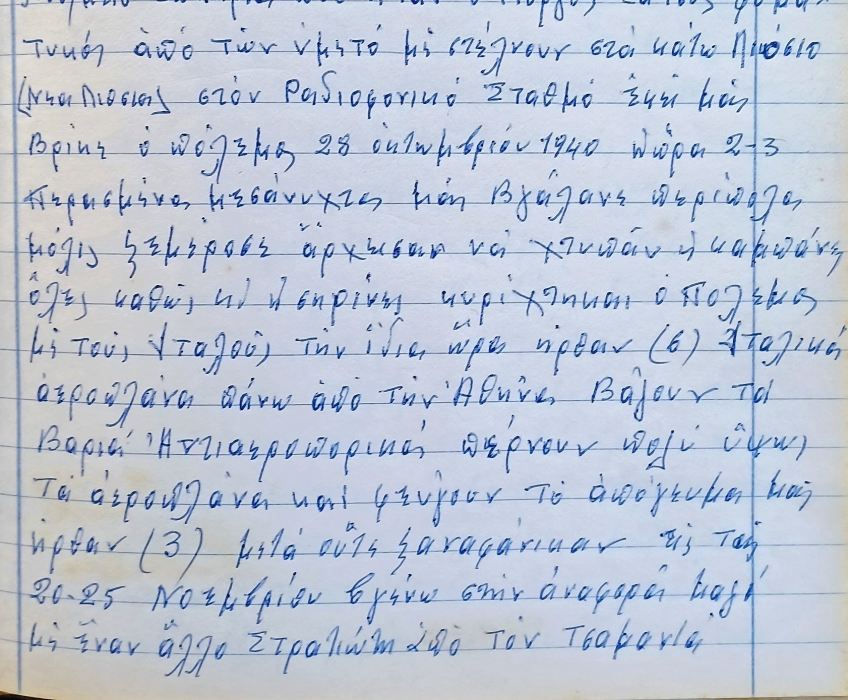 Γιώργος
τικός ἀπό τὼν ὑμετό μὲ στέλνουν στά κάτω Λιόσια
(Νεα Λιοσια) στόν Ραδιοφονικό Σταθμό ἐκεῖ μάς
Βρίκε ὁ πόλεμος 28 ὀκτωμβρίου 1940 ἡ ὥρα 2-3
περασμένα μεσάνυχτα μάς Βγάλανε περίπολα
μόλις ξεμέροσε ἄρχεισαν νά χτυπάν ἡ καμπάνες
ὅλες καθώς κι ἡ σηρίνες κυρίχτηκαι ὁ Πολεμος
μὲ τούς Ιταλούς τήν ἴδια ὥρα ἠρθαν (6) Ιταλικά
ἀεροπλάνα πάνω ἀπό τήν Ἀθήνα Βάζουν τά
Βαριά Ἀντιαεροπορικά πέρνουν πολύ ὕψως
Τά ἀεροπλάνα καί φευγουν τό ἀπόγευμα μάς
ἠρθαν (3) μετά οὔτε ξαναφάνικαν τίς
20-25 Νοεμβρίου βγένω στήν ἀναφορά μαζί
μὲ ἕναν ἄλλο Στρατιώτη ἀπό τόν Τσαμαντά